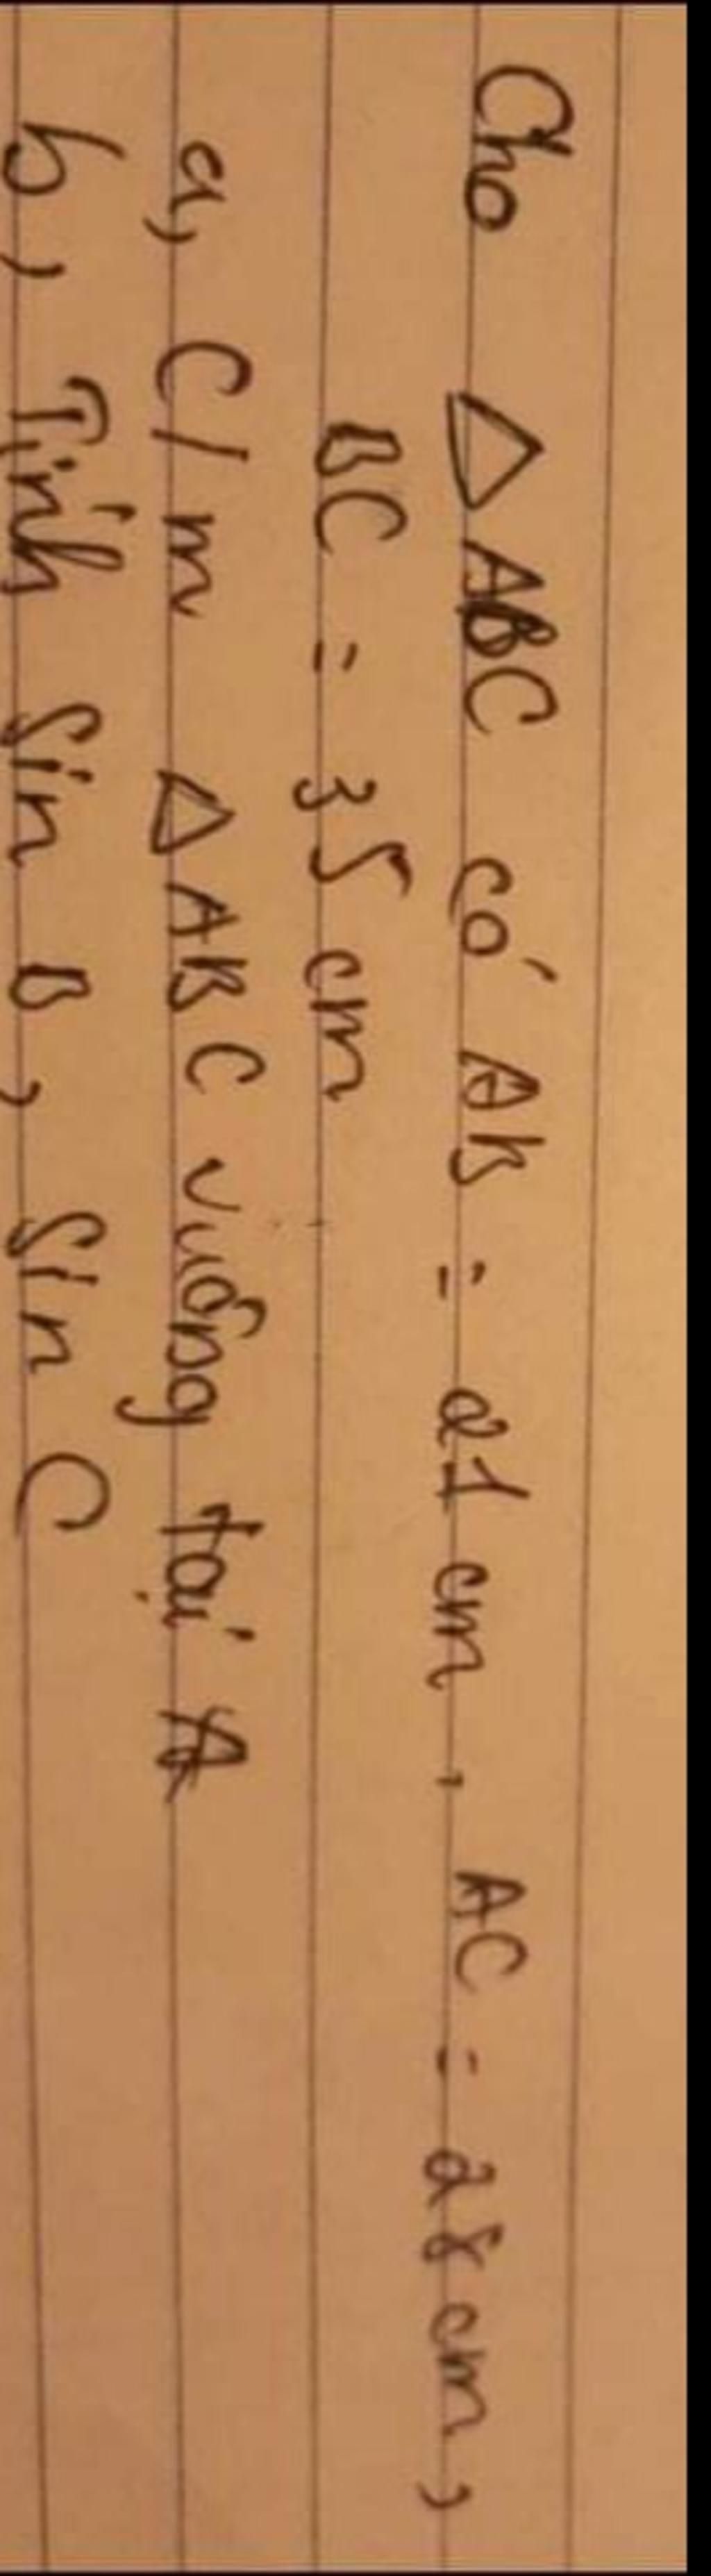 Cho △ABC có AB = 21 cm, AC = 28 cm,
BC = 35 cm
a, C/m △ABC vuông tại A
b, Tính Sin B, Sin C